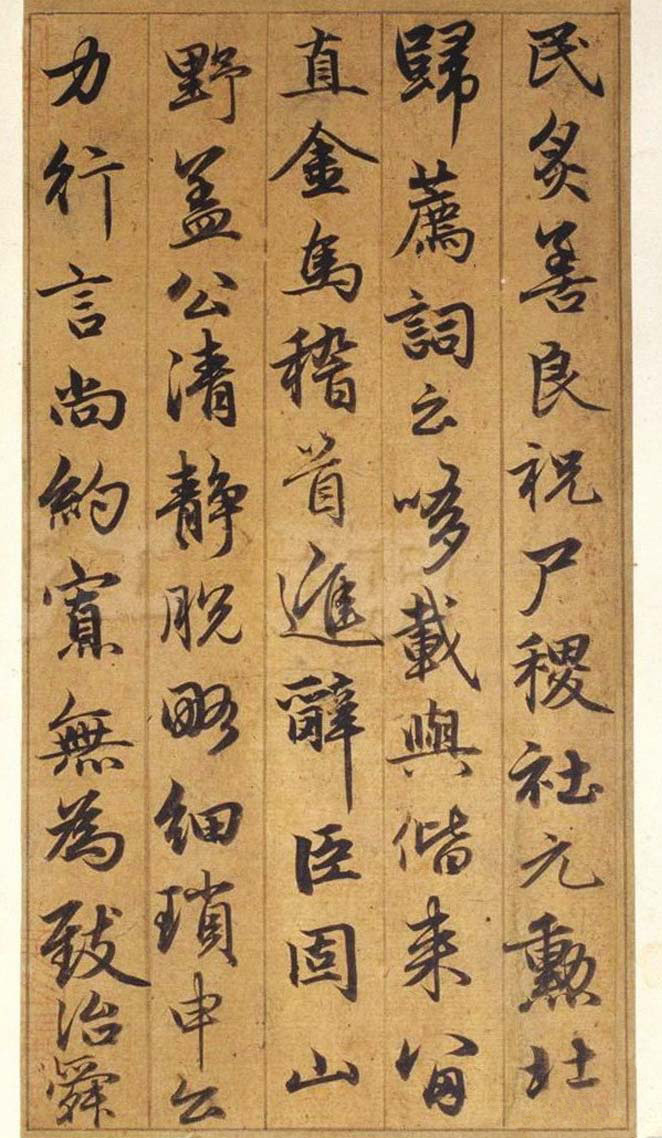 民炙善良祝尸稷社元勳壯
歸薦詞云載與偕来
直金馬稽首進辭臣固山
野盖公清靜脱略細瑣申公
力行言尚約寡無為致治舜